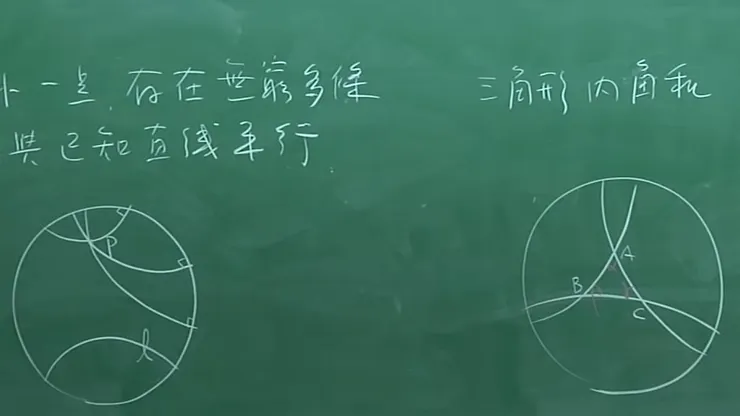 外一点,存在無窮多條
與已知直线平行
三角形内角和
P
l
A
B
C